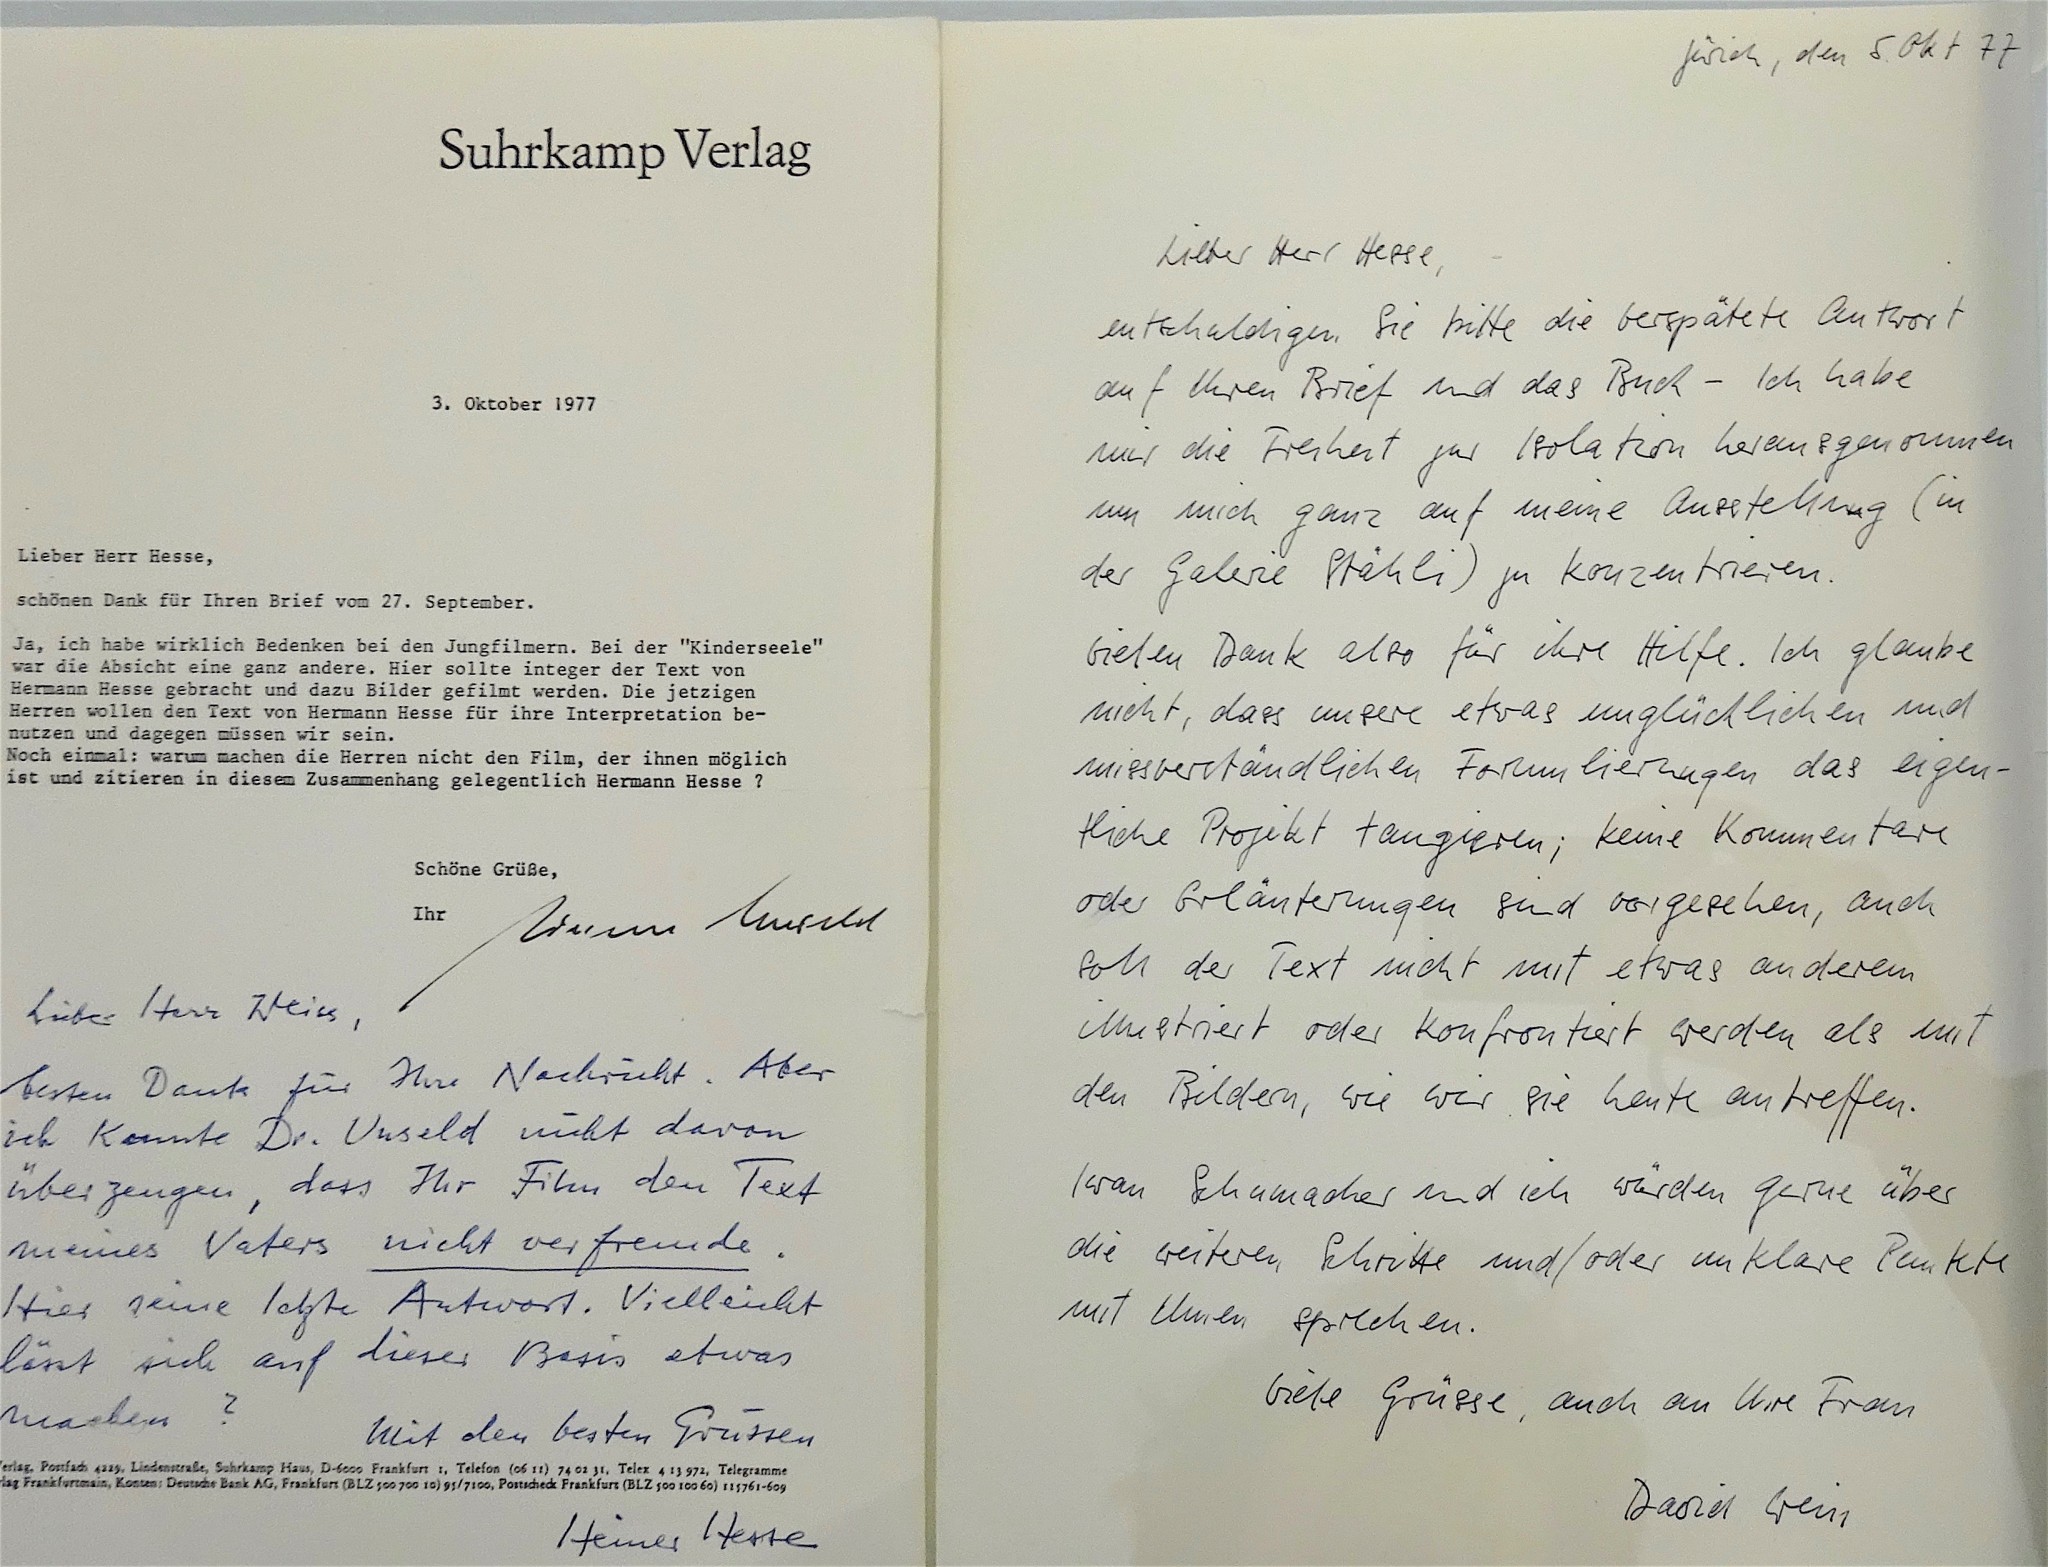 Suhrkamp Verlag
3. Oktober 1977
Lieber Herr Hesse,
schönen Dank für Ihren Brief vom 27. September.
Ja, ich habe wirklich Bedenken bei den Jungfilmern. Bei der "Kinderseele"
war die Absicht eine ganz andere. Hier sollte integer der Text von
Hermann Hesse gebracht und dazu Bilder gefilmt werden. Die jetzigen
Herren wollen den Text von Hermann Hesse für ihre Interpretation be-
nutzen und dagegen müssen wir sein.
Noch einmal: warum machen die Herren nicht den Film, der ihnen möglich
ist und zitieren in diesem Zusammenhang gelegentlich Hermann Hesse ?
Schöne Grüße,
Ihr
Unseld
Lieber Herr Weiss,
besten Dank für Ihre Nachricht. Aber
ich konnte Dr. Unseld nicht davon
überzeugen, dass Ihr Film den Text
meines Vaters nicht verfremde.
Hier seine letzte Antwort. Vielleicht
lässt sich auf dieser Basis etwas
machen ?
Mit den besten Grüssen
Verlag, Postfach 4229, Lindenstraße, Suhrkamp Haus, D-6000 Frankfurt 1, Telefon (06 11) 74 02 31, Telex 4 13 972, Telegramme
Frankfurtmain, Konten: Deutsche Bank AG, Frankfurt (BLZ 500 700 10) 95/7100, Postscheck Frankfurt (BLZ 500 100 60) 115761-609
Heiner Hesse
Zürich, den 5. Okt 77
Lieber Herr Hesse,
entschuldigen Sie bitte die verspätete Antwort
auf Ihren Brief und das Buch – Ich habe
mir die Freiheit zur Isolation herausgenommen
um mich ganz auf meine Ausstellung (in
der Galerie Stähli) zu konzentrieren.
Vielen Dank also für ihre Hilfe. Ich glaube
nicht, dass unsere etwas unglücklichen und
missverständlichen Formulierungen das eigen-
tliche Projekt tangieren; keine Kommentare
oder Erläuterungen sind vorgesehen, auch
soll der Text nicht mit etwas anderem
illustriert oder konfrontiert werden als mit
den Bildern, wie wir sie heute antreffen.
Iwan Schumacher und ich würden gerne über
die weiteren Schritte und/oder unklare Punkte
mit Ihnen sprechen.
Viele Grüsse, auch an Ihre Frau
David Weiss